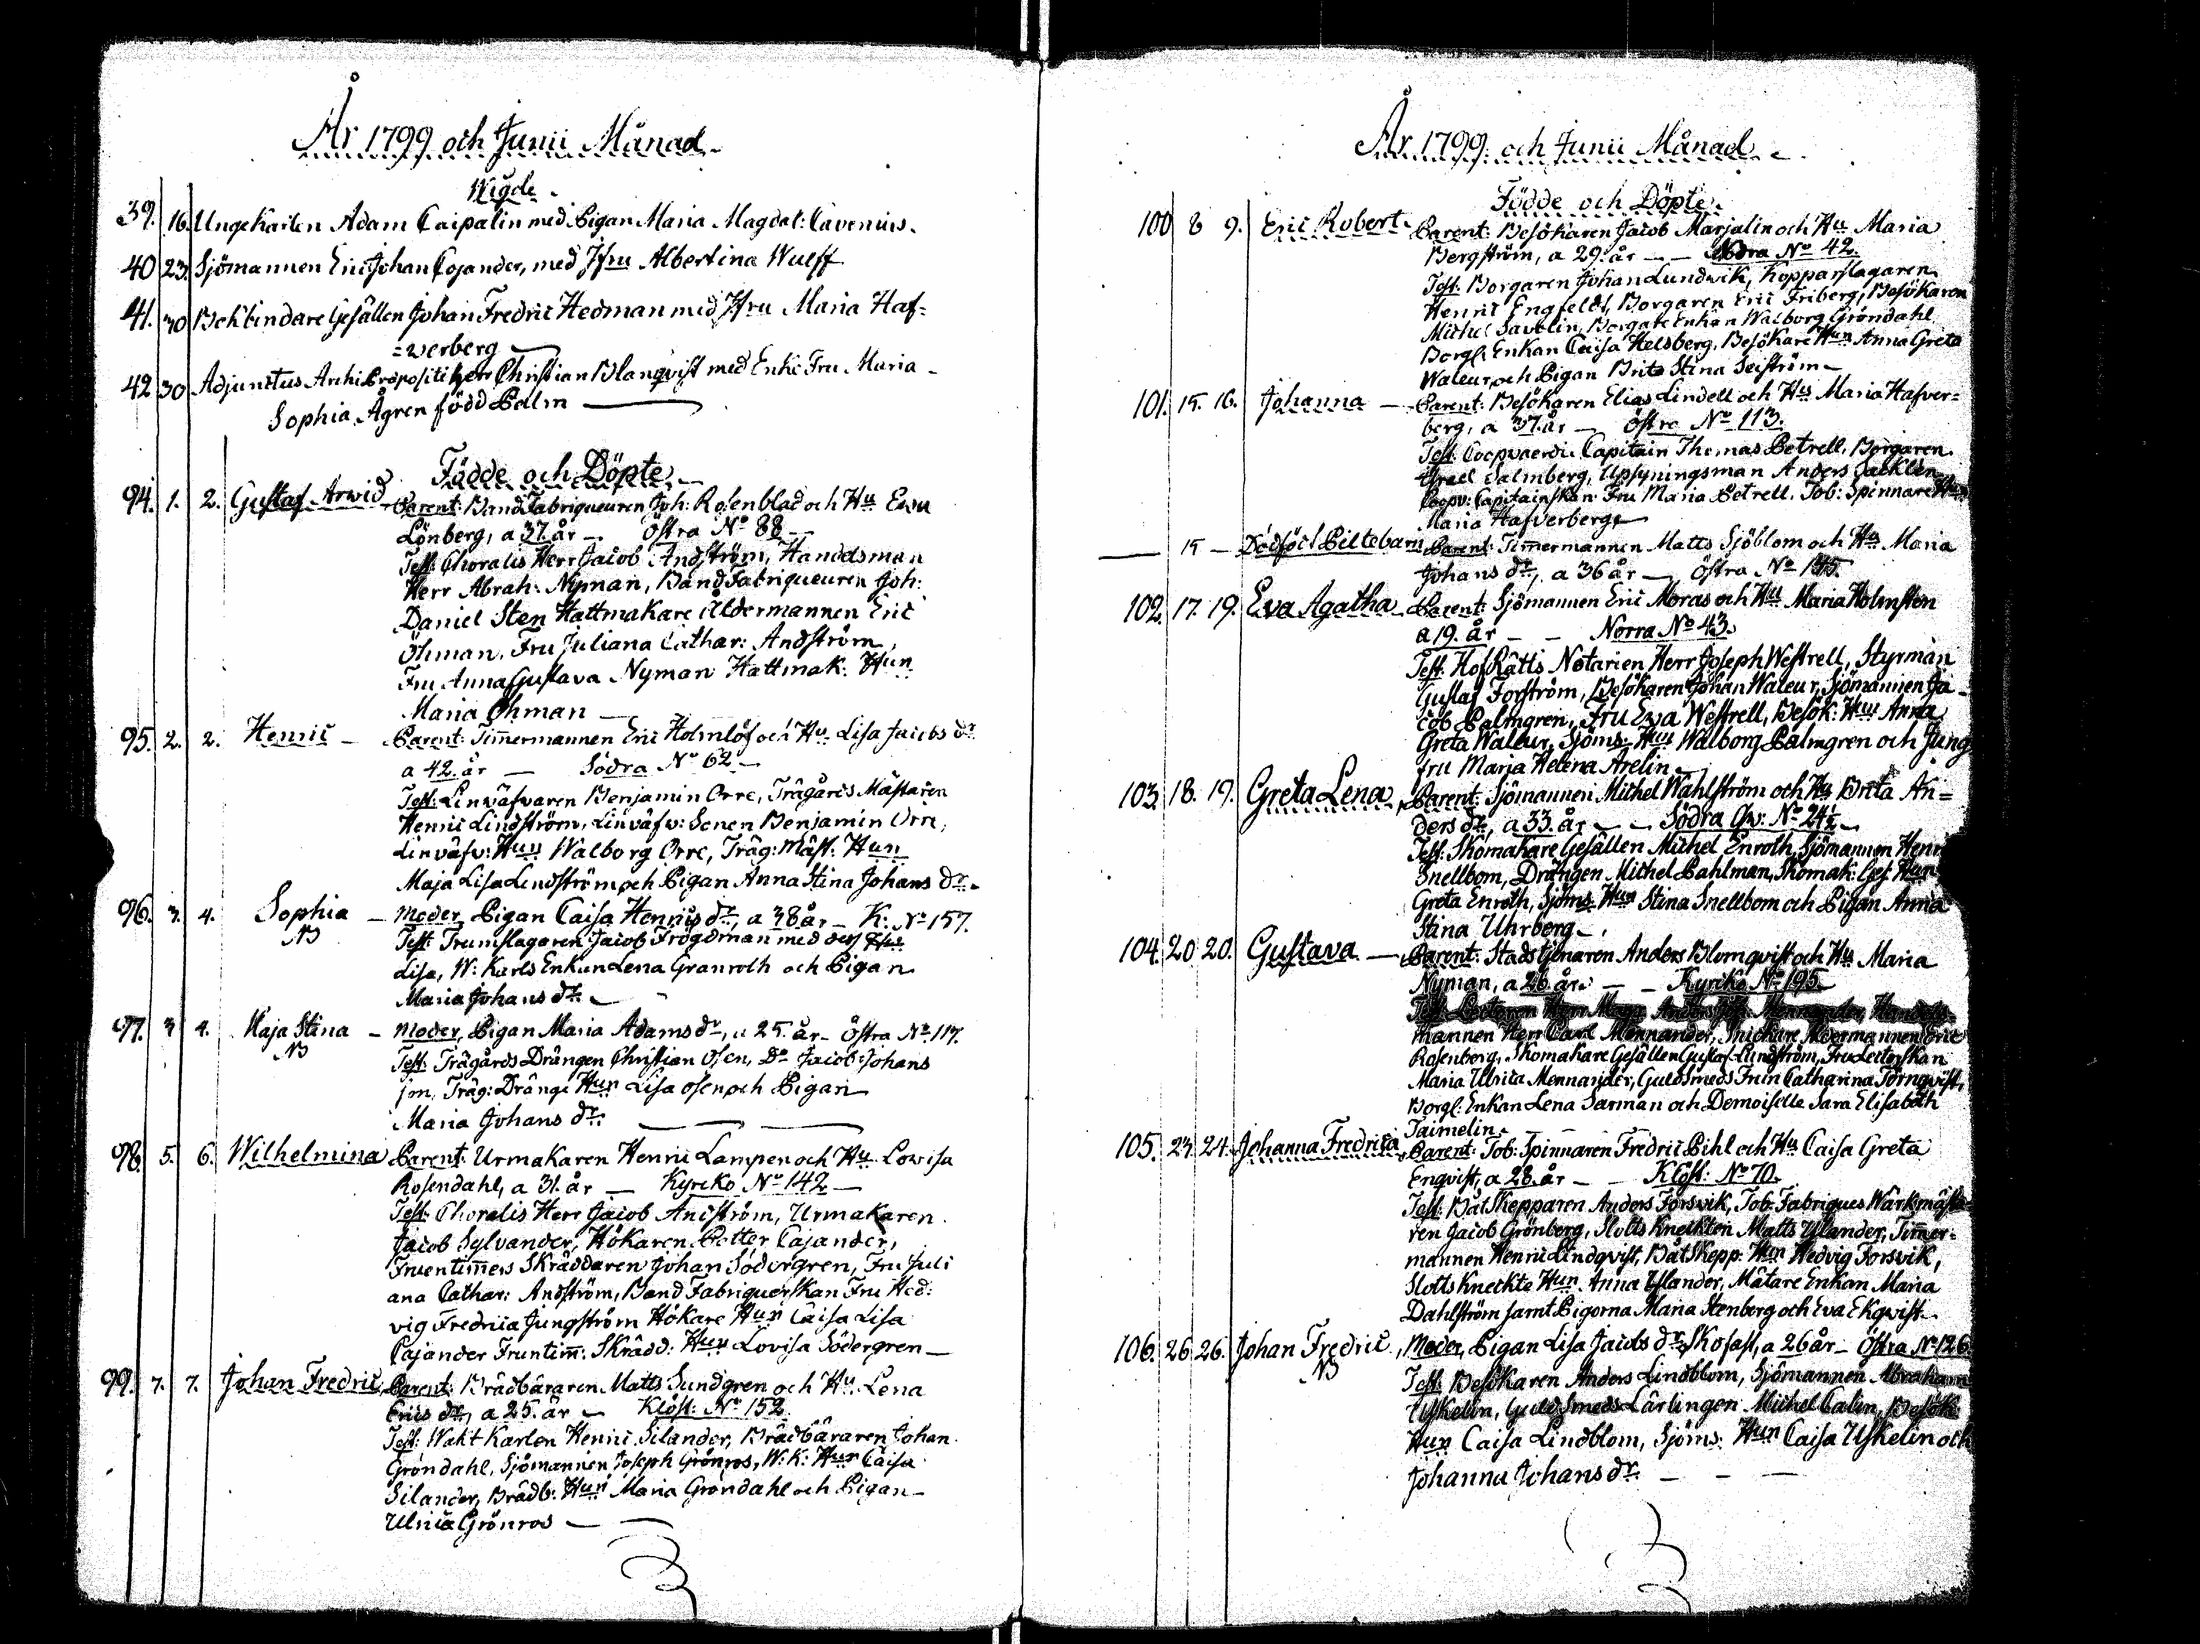 År 1799 och Junii Månad
Wigde
39. 16. Ungekarlen Adam Caipalin med Pigan Maria Magdal: Cavenius.
40 23. Sjömannen Eric Johan Cojander, med Jfru Albertina Wulff
41. 30 Bokbindare Gesällen Johan Fredric Hedman med Jfru Maria Haf=
=werberg
42 30 Adjunctus Archi Præpositi Herr Christian Blanqvist med Enke Fru Maria
Sophia Ågren född Palm
Födde och Döpte
94. 1. 2. Gustaf Arwid Parent: Band Fabriqueuren Joh: Rosenblad och Hu Ewa
Lönberg, a 37. år — Östra No 88
Test: Choralis Herr Jacob Andström, Handelsman
Herr Abrah: Nyman, Band Fabriqueuren Joh:
Daniel Sten Hattmakare Åldermannen Eric
Öhman, Fru Juliana Cathar: Andström,
Fru Anna Gustava Nyman Hattmak: Hun
Maria Öhman
95. 2. 2. Henric — Parent: Timmermannen Eric Holmlöf och Hu Lisa Jacobs dr
a 42. år — Södra No 62
Test: Linväfvaren Benjamin Orre, Trägårds Mästaren
Henric Lindström, Linväfv: Sonen Benjamin Orre,
Linväfv: Hun Walborg Orre, Träg: Mäst: Hun
Maja Lisa Lindström och Pigan Anna Stina Johans dr
96. 3. 4. Sophia — Moder, Pigan Caisa Henrics dr, a 38 år — K: No 157.
NB Test: Trumslagaren Jacob Frögdman med dess Hu
Lisa, W: Karls Enkan Lena Granroth och Pigan
Maria Johans dr
97. 3 4. Maja Stina — Moder, Pigan Maria Adams dr, a 25. år — Östra No 117.
NB Test: Trägårds Drängen Christian Osen, Do Jacob Johans
son, Träg: Dränge Hun Lisa Osen och Pigan
Maria Johans dr
98. 5. 6. Wilhelmina Parent: Urmakaren Henric Lampen och Hu Lovisa
Rosendahl, a 31. år — Kyrko No 142
Test: Choralis Herr Jacob Andström, Urmakaren
Jacob Sylvander, Hökaren Petter Cajander,
Fruentimers Skräddaren Johan Södergren, Fru Juli
ana Cathar: Andström, Band Fabriqueurskan Fru Hed:
vig Fredrica Jungström Hökare Hun Caisa Lisa
Cajander Fruntim: Skrädd: Hun Lovisa Södergren
99. 7. 7. Johan Fredric Parent: Brädbäraren Matts Sundgren och Hu Lena
Erics dr, a 25. år — Klöst: No 152
Test: Wakt Karlen Henric Silander, Brädbäraren Johan
Gröndahl, Sjömannen Joseph Grönros, W: K: Hun Caisa
Silander, Brädb: Hun Maria Gröndahl och Pigan
Ulrica Grönros
År 1799 och Junii Månad
Födde och Döpte
100 8 9. Eric Robert Parent: Besökaren Jacob Marjalin och Hu Maria
Bergström, a 29. år — No 42.
Test: Borgaren Johan Lundwik, Kopparslagaren
Henric Engfeldt, Borgaren Eric Friberg, Besökaren
Michel Savolin, Borgare Enkan Walborg Gröndahl
Borgl: Enkan Caisa Helsberg, Besökare Hun Anna Greta
Waleur, och Pigan Brita Stina Seiström
101. 15. 16. Johanna — Parent: Besökaren Elias Lindell och Hu Maria Hafver=
berg, a 37. år — Östra No 113.
Test: Coopvaerdie Capitain Thomas Petrell, Borgaren
Israel Salmberg, Upsyningsman Anders Jacklén
Coopv: Capitainskan Fru Maria Petrell, Tob: Spinnare Hun
Maria Hafverberg
— 15 — Dödföd Piltebarn Parent: Timmermannen Matts Sjöblom och Hu Maria
Johans dr, a 36 år — Östra No
102. 17. 19. Eva Agatha — Parent: Sjömannen Eric Moras och Hu Maria Holmsten
a 19. år — — Norra No 43.
Test: HofRätts Notarien Herr Joseph Westrell, Styrman
Gustaf Forsström, Besökaren Johan Waleur, Sjömannen Ja-
cob Palmgren, Fru Eva Westrell, Besök: Hun Anna
Greta Waleur, Sjöms: Hun Walborg Palmgren och Jung
fru Maria Helena Arelin
103. 18. 19. Greta Lena, Parent: Sjömannen Michel Wahlström och Hu Brita An=
ders dr, a 33. år — — Södra Qv: No 24½
Test: Skomakare Gesällen Michel Enroth, Sjömannen Henr
Snellbom, Drängen Michel Pahlman, Skomak: Ges: Hun
Greta Enroth, Sjöms: Hun Stina Snellbom och Pigan Anna
Stina Uhrberg
104. 20 20. Gustava — Parent: Stadstjenaren Anders Blomqvist och Hu Maria
Nyman, a 26 år — — Kyrko No 195
Test: Lectoren Herr Mennander, Handels
mannen Herr Carl Mennander, Snickare Åldermannen Eric
Rosenberg, Skomakare Gesällen Gustaf Lundström, Fru Lectorskan
Maria Ulrica Mennander, Guldsmeds Frun Catharina Törnqvist,
Borgl: Enkan Lena Sarman och Demoiselle Sara Elisabeth
Taimelin
105. 23. 24. Johanna Fredrica Parent: Tob: Spinnaren Fredric Pihl och Hu Caisa Greta
Enqvist, a 28. år — — Klöst: No 70.
Test: BåtSkepparen Anders Forsvik, Tob: Fabriques Wärkmästa=
ren Jacob Grönberg, Slotts Knechten Matts Uslander, Timmer=
mannen Henric Lindqvist, BåtSkepp: Hun Hedvig Forsvik,
Slotts Knechte Hun Anna Uslander, Mätare Enkan Maria
Dahlström samt Pigorna Maria Stenberg och Eva Ekqvist
106. 26 26. Johan Fredric, Moder, Pigan Lisa Jacobs dr Skofast, a 26 år — Östra No 126
NB Test: Besökaren Anders Lindblom, Sjömannen Abraham
Uskelin, GuldSmeds Lärlingen Michel Calin, Besök:
Hun Caisa Lindblom, Sjöms: Hun Caisa Uskelin och
Johanna Johans dr